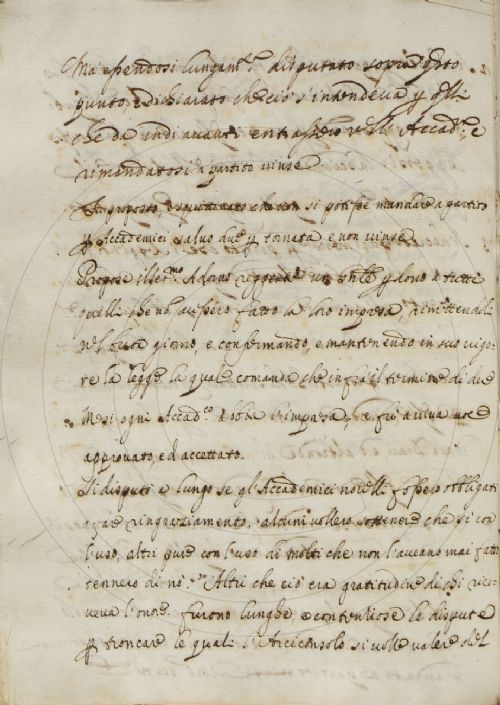 Ma essendosi lungam.te disputato sopra q.sto
punto, e dichiarato che ciò s'intendeva p q.lli
che da indi avanti entrassero nell' Accad.a e
rimandatosi a partito vinse
Fu proposto, e partitato che non si potesse mandare a partito
p Accademici salvo due p tornata e non vinse
Propose il Ser.mo Adorno reggente un p dono a tutti
quelli che no avessero fatto la loro impresa, rimettendoli
nel giorno, e confermando, e mantenendo in suo vigo-
re la legge la quale comanda che infra il termine di due
Mesi ogni Accad.co abbia l'impresa, e fu a viva voce
approvato, ed accettato.
Si disputò a lungo se gl'Accademici novelli fossero obbligati
a fare ringraziamento, alcuni vollero sostenere che si con
l'uso, altri pure con l'uso di molti che non l'aveano mai fatto
tennero di nò. Altri che ciò era gratitudine di chi rice-
veva l'onore. furono lunghe e contenziose le dispute
p troncare le quali l'Arciconsolo si volle valere del